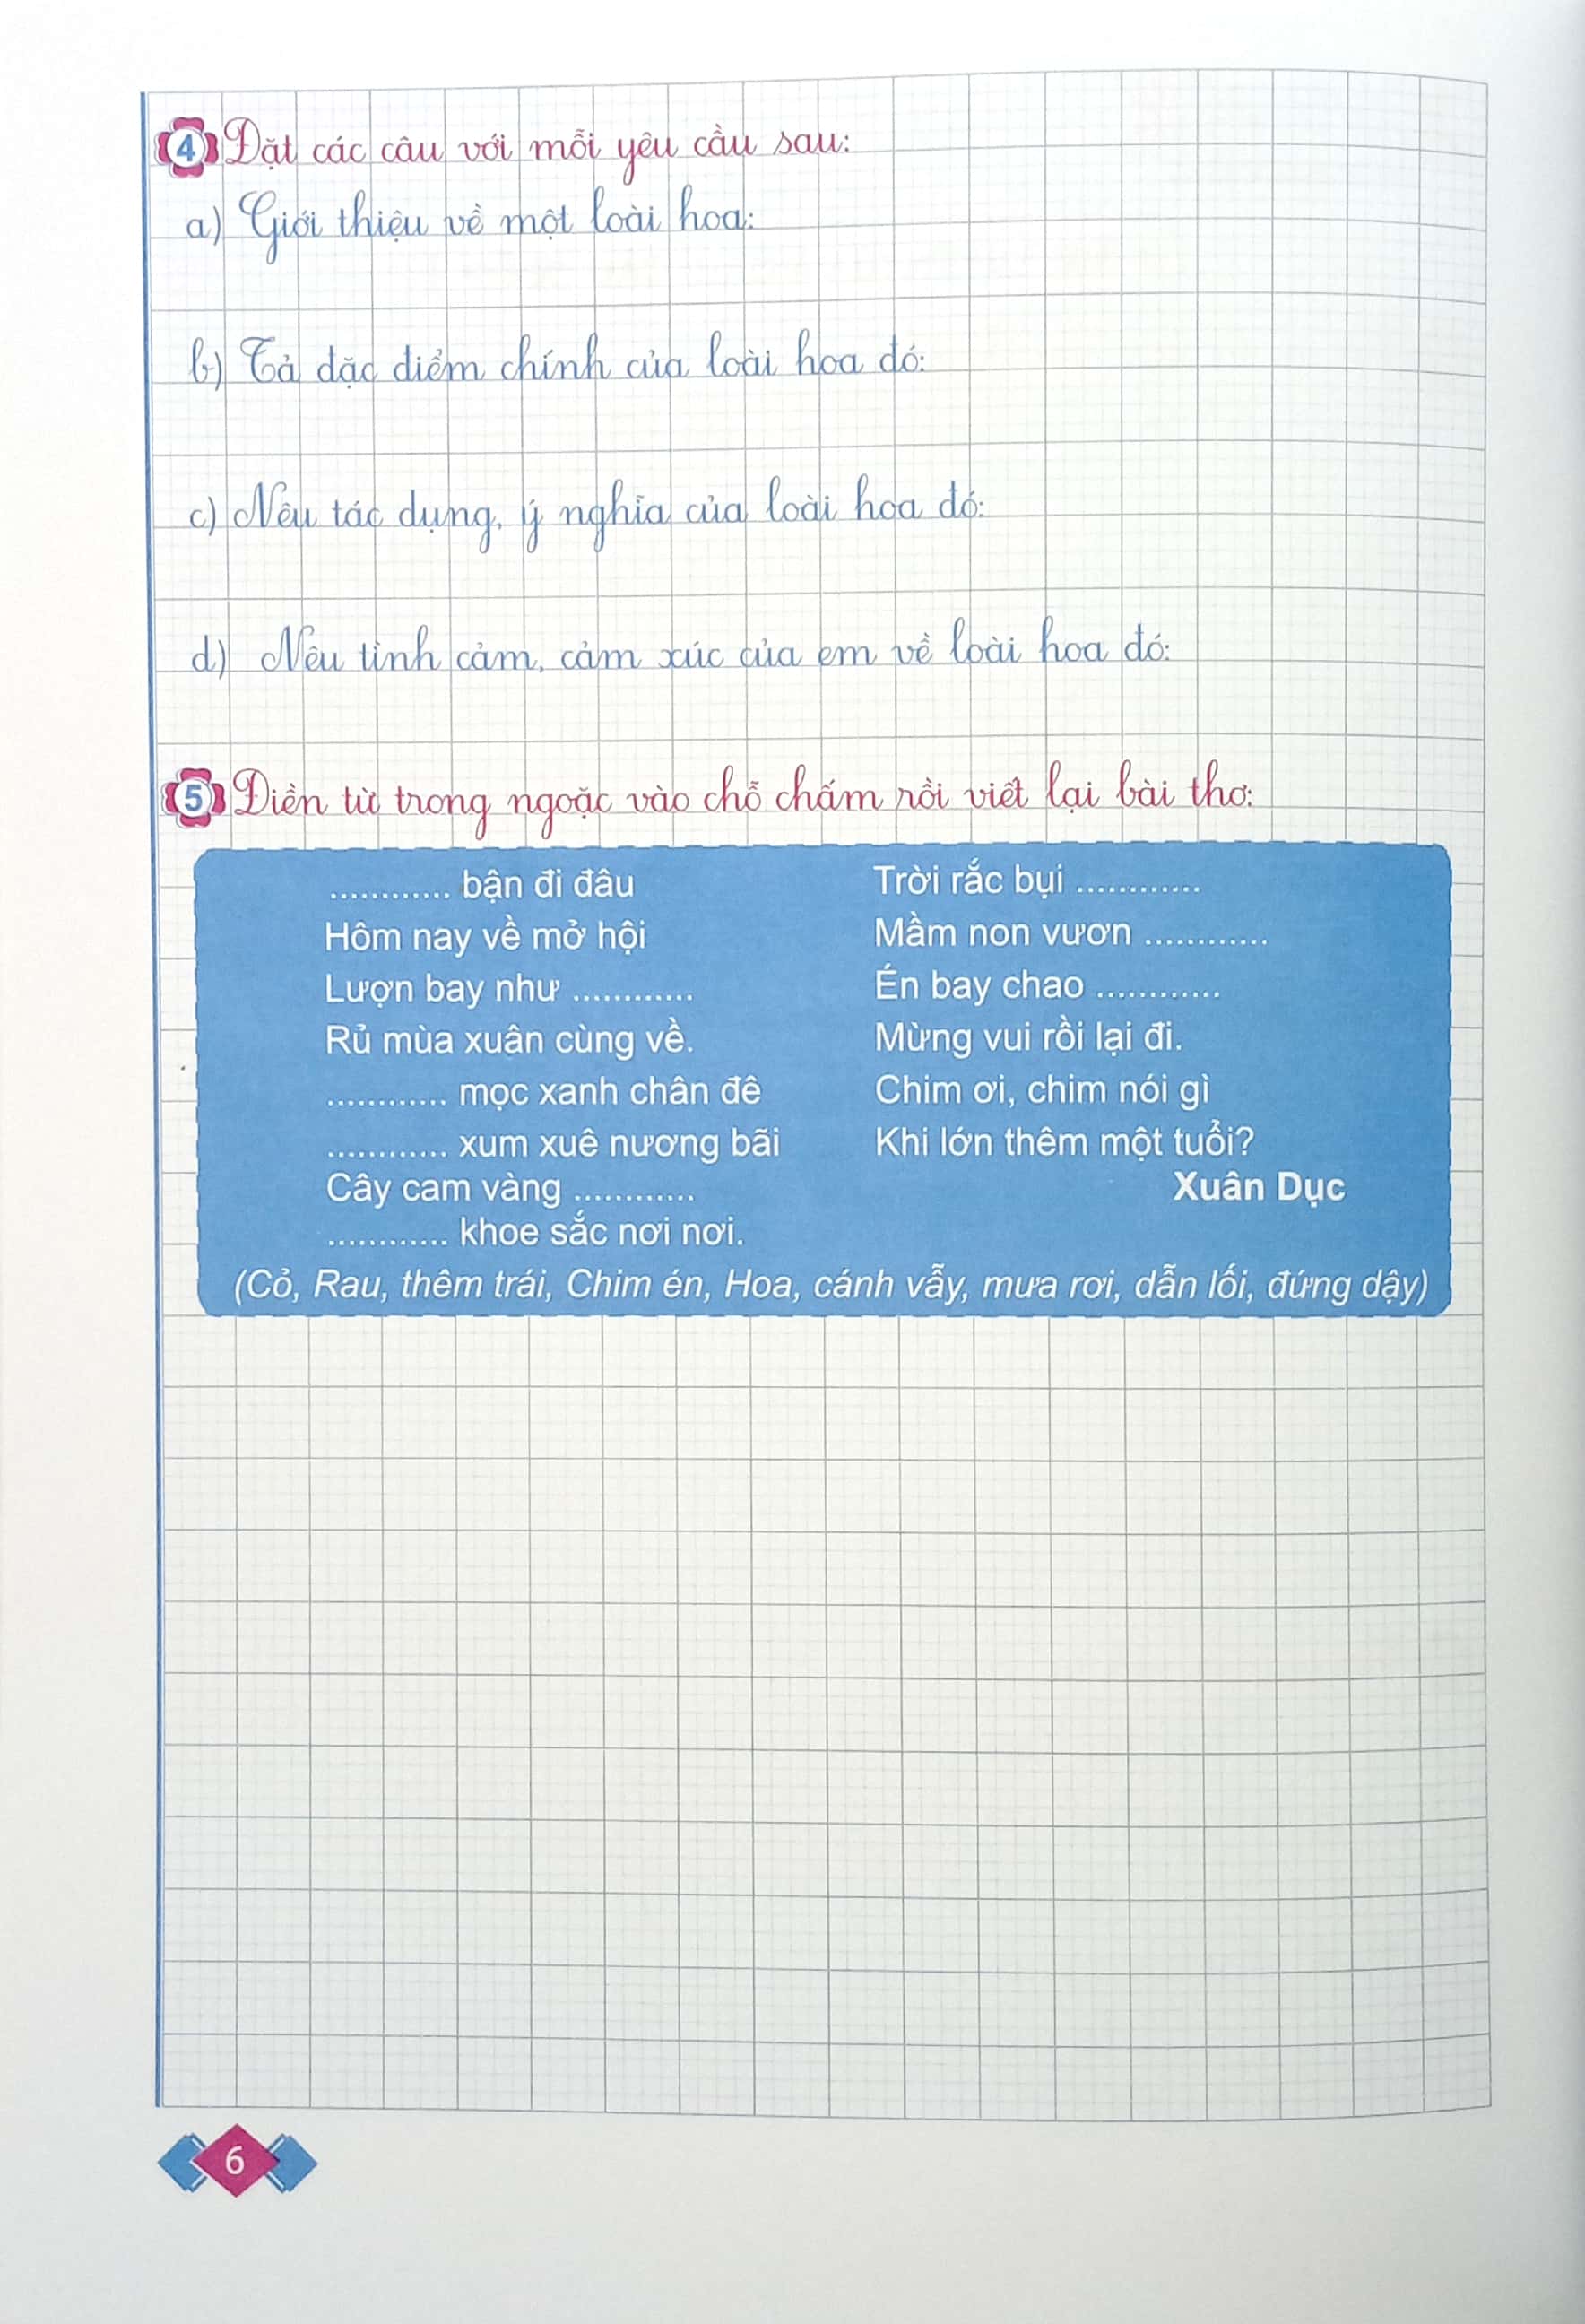 4 Đặt các câu với mỗi yêu cầu sau:
a) Giới thiệu về một loài hoa:
b) Tả đặc điểm chính của loài hoa đó:
c) Nêu tác dụng, ý nghĩa của loài hoa đó:
d) Nêu tình cảm, cảm xúc của em về loài hoa đó:
5 Điền từ trong ngoặc vào chỗ chấm rồi viết lại bài thơ:
............ bận đi đâu
Hôm nay về mở hội
Lượn bay như ............
Rủ mùa xuân cùng về.
............ mọc xanh chân đê
............ xum xuê nương bãi
Cây cam vàng ............
............ khoe sắc nơi nơi.
Trời rắc bụi ............
Mầm non vươn ............
Én bay chao ............
Mừng vui rồi lại đi.
Chim ơi, chim nói gì
Khi lớn thêm một tuổi?
Xuân Dục
(Cỏ, Rau, thêm trái, Chim én, Hoa, cánh vẫy, mưa rơi, dẫn lối, đứng dậy)
6